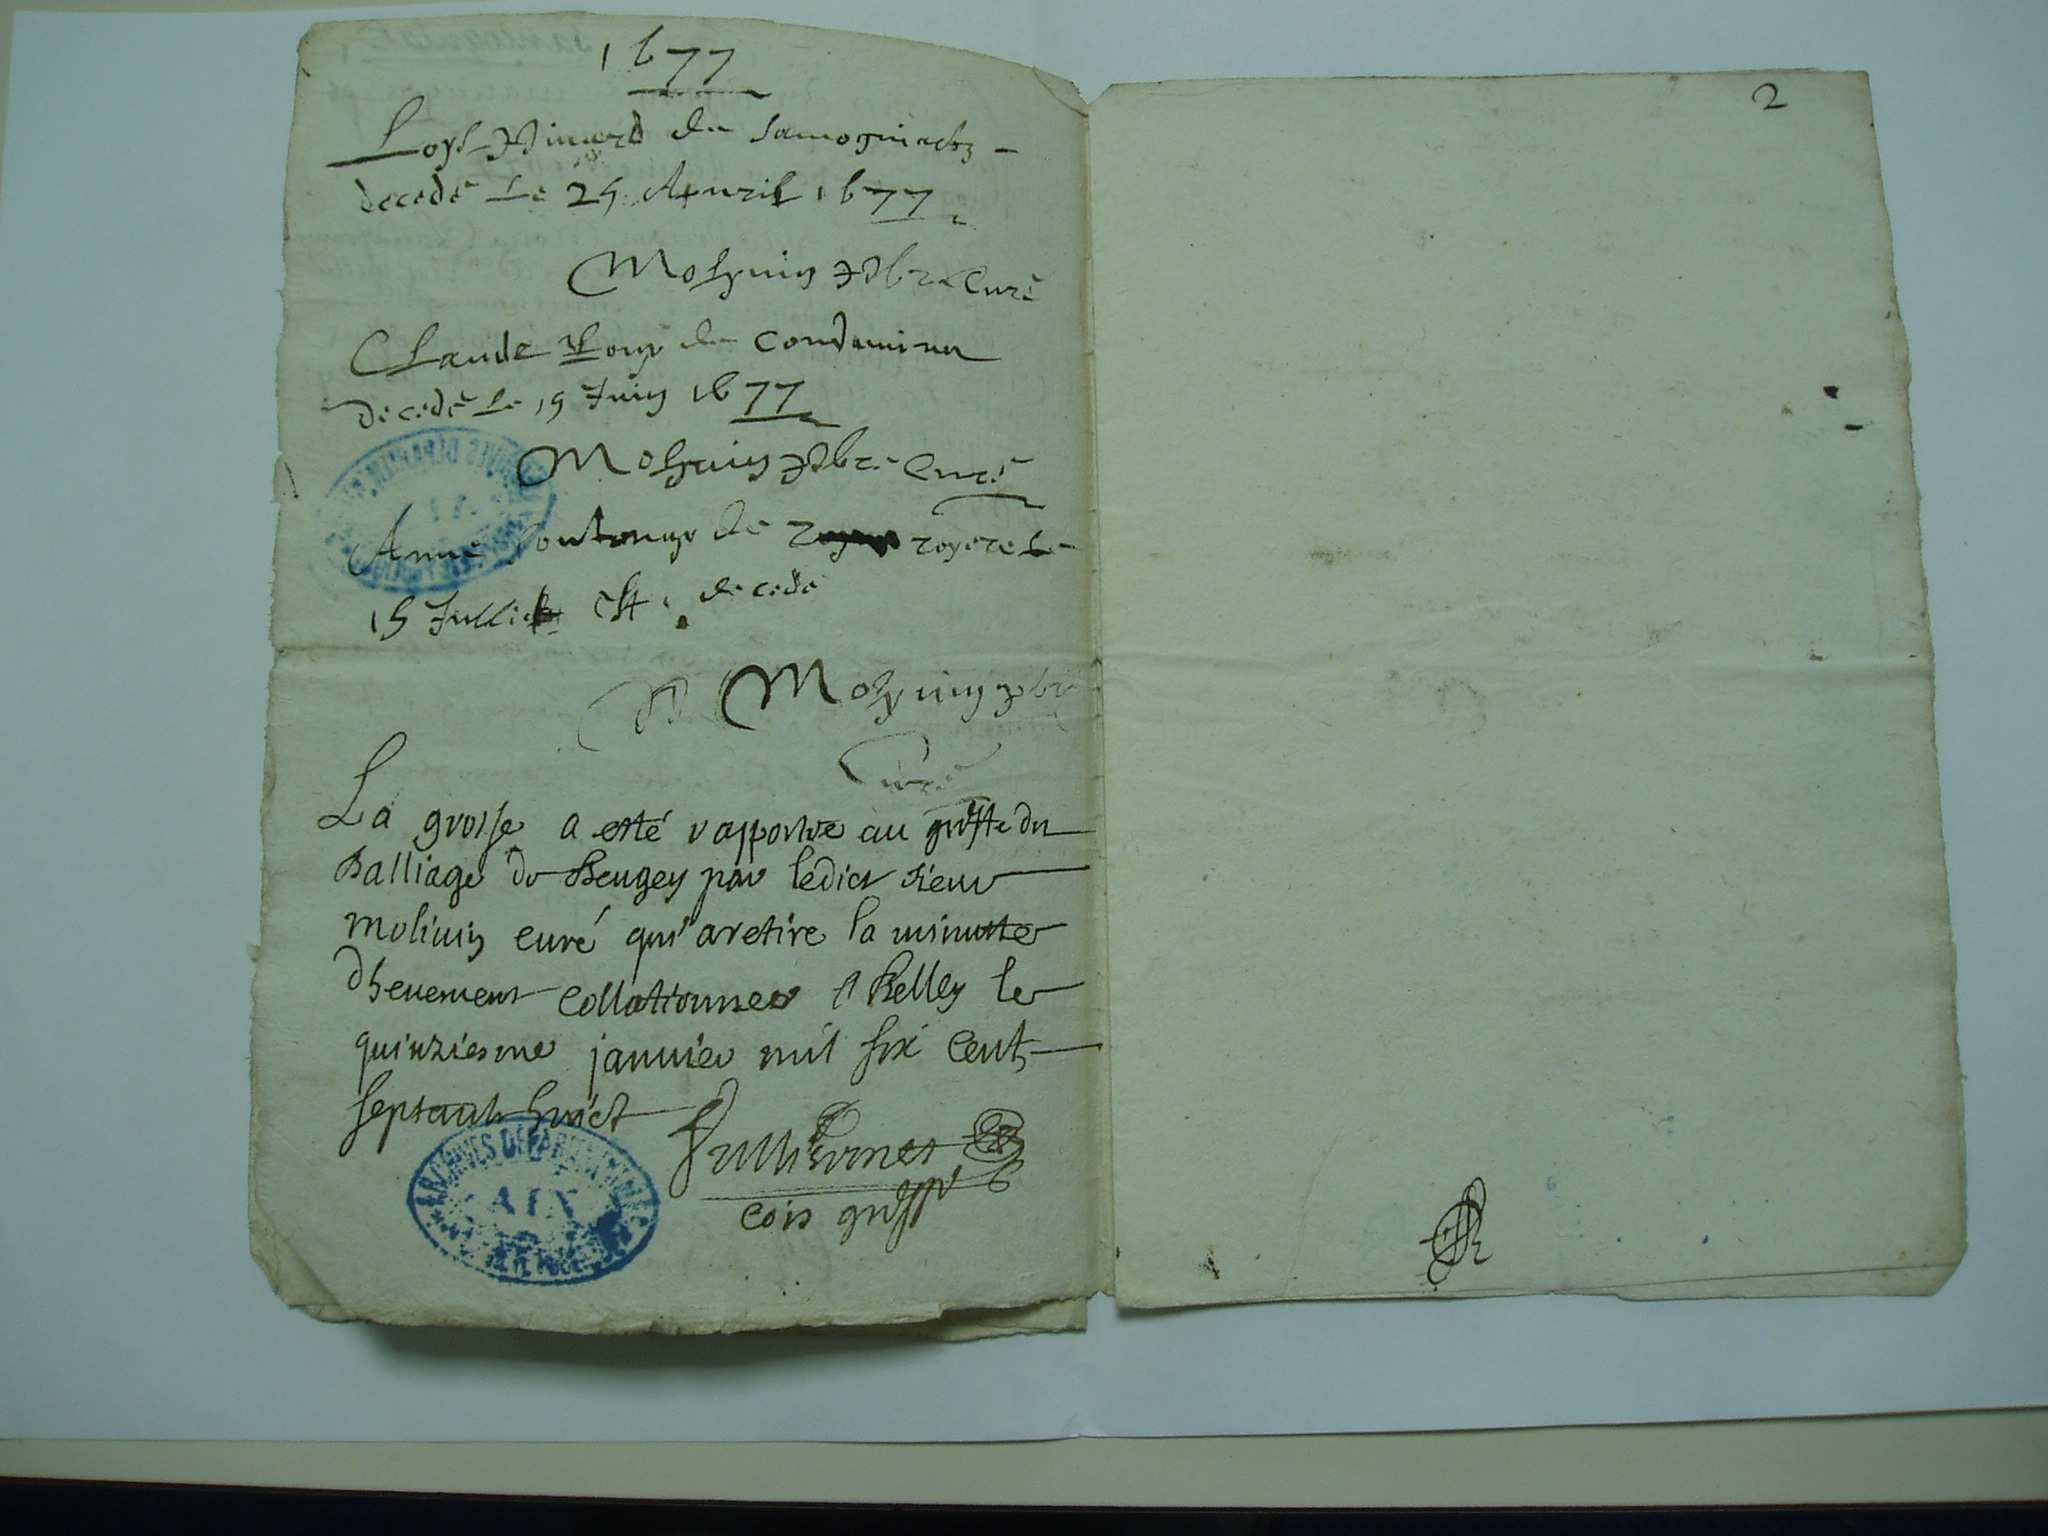 1677
Loys Pinard de Samogniacz
decedé le 25 Apuril 1677
Molynin pbre Curé
Claude Roux de Condamina
decedé le 15 Juin 1677
Molynin pbre Curé
Anne de royere le
15 Jullie est decedé
Molynin pbre
Curé
La grosse a esté rapportee au greffe du
Balliage de Beugey par ledict sieur
molinin curé qui a retire la minutte
dheuement collationnee A Belley le
quinziesme janvier mil six cent
septante huict
Jullieronet
cois greffr
ARCHIVES DEPARTEMENTALES
AIN
2